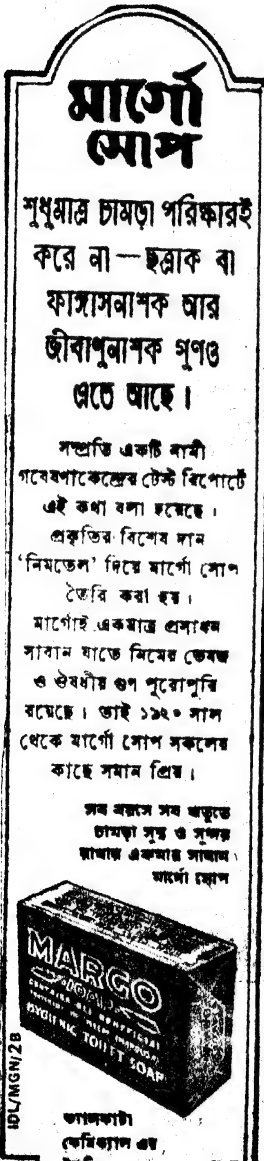 মার্গো
সোপ
শুধুমাত্র চামড়া পরিষ্কারই
করে না — ছত্রাক বা
ফাঙ্গাসনাশক আর
জীবাণুনাশক গুণও
এতে আছে।
সম্প্রতি একটি নামী
গবেষণাকেন্দ্রের টেস্ট রিপোর্টে
এই কথা বলা হয়েছে।
প্রকৃতির বিশেষ দান
'নিমতেল' দিয়ে মার্গো সোপ
তৈরি করা হয়।
মার্গোই একমাত্র প্রসাধন
সাবান যাতে নিমের ভেষজ
ও ঔষধীয় গুণ পুরোপুরি
রয়েছে। তাই ১৯২০ সাল
থেকে মার্গো সোপ সকলের
কাছে সমান প্রিয়।
সব বয়সে সব ঋতুতে
চামড়া সুস্থ ও সুন্দর
রাখার একমাত্র সাবান
মার্গো সোপ
MARGO
SOAP
CONTAINS ALL BENEFICIAL
HYGIENIC TOILET SOAP
IDL/MGN/2B
ক্যালকাটা
কেমিক্যাল এর